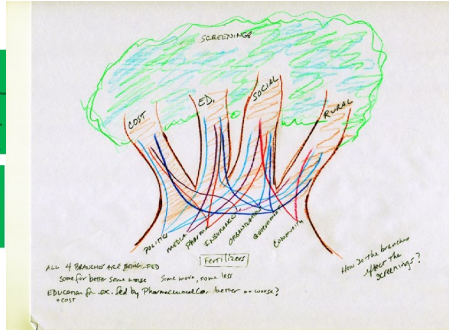 SCREENINGS
COST
ED.
SOCIAL
RURAL
POLITICS
MEDIA
PHARMA
INSURANCE
ORGANIZATIONS
GOVERNMENT
COMMUNITY
Fertilizers
ALL 4 BRANCHES ARE BEING FED
Some for better some worse Some more, some less
EDUCATION for ex. fed by Pharmaceutical Co. better or worse?
+ COST
How do the branches
affect the
screenings?